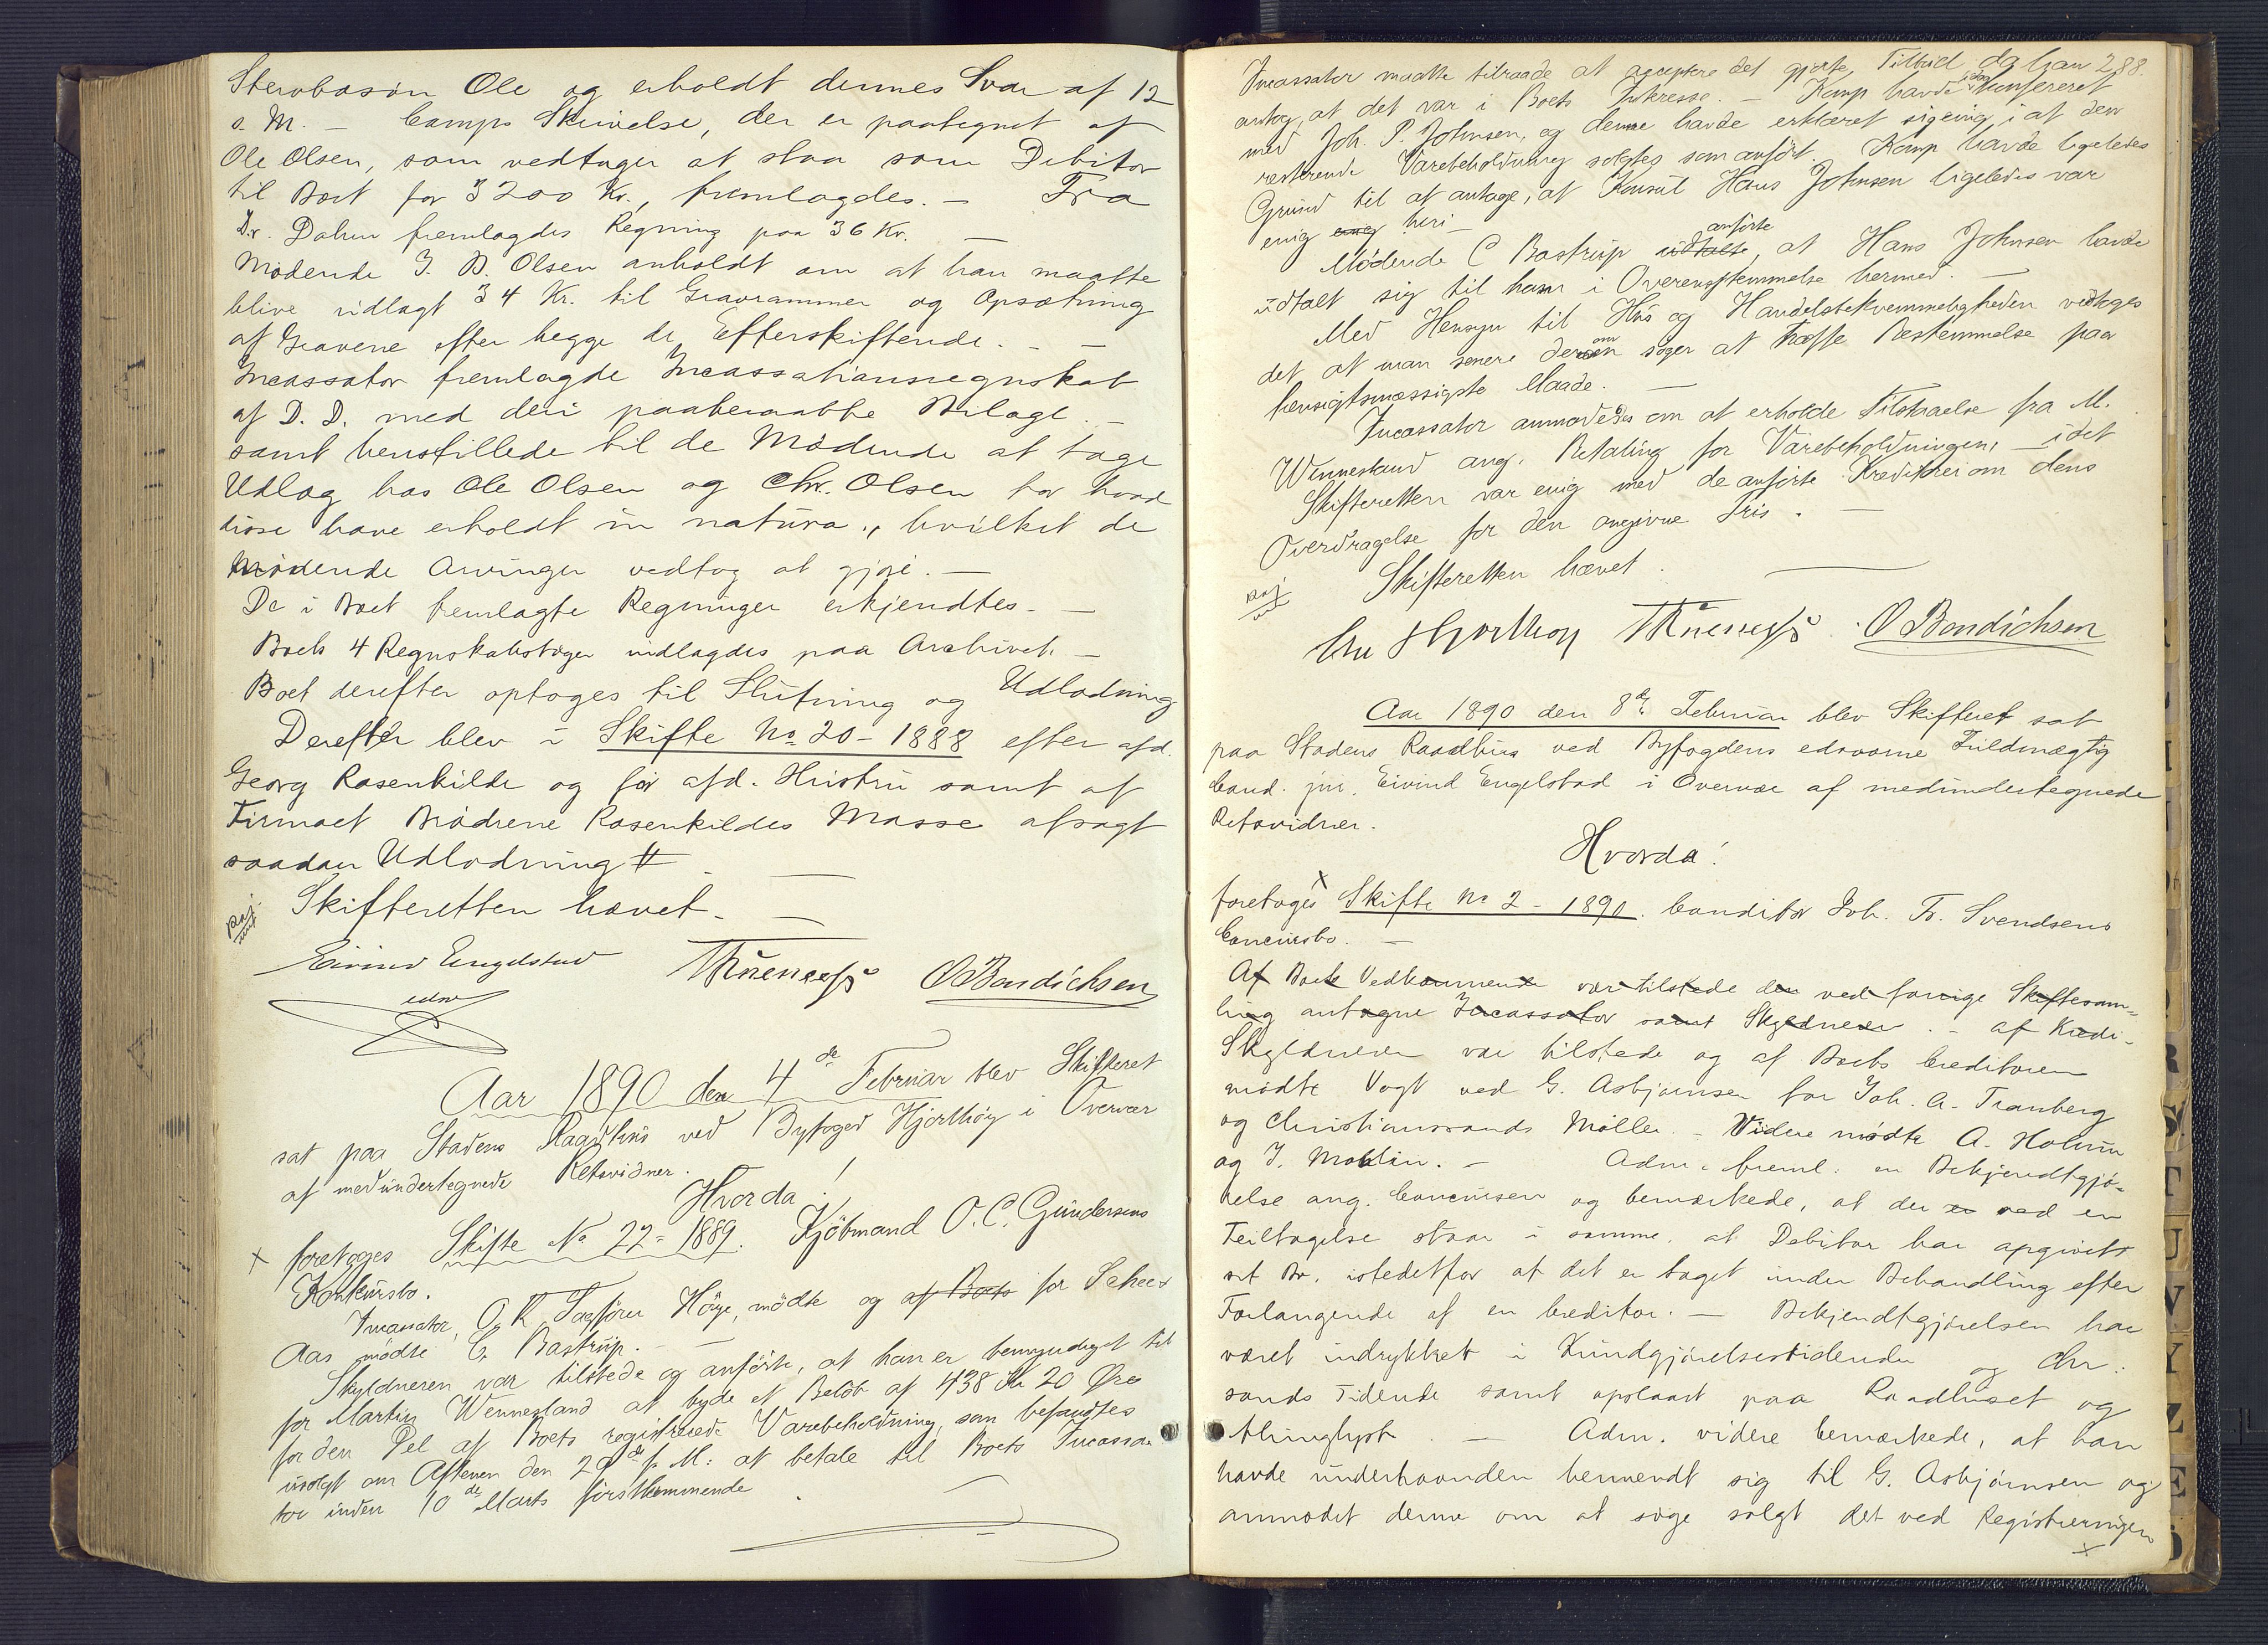 Stervbosøn Ole og erholdt dennes Svar af 12
s. M. – Camps Skrivelse, der er paategnet af
Ole Olsen, som vedtager at staa som Debitor
til Boet for 3200 Kr., fremlagdes. – Fra
Dr. Dahm fremlagdes Regning paa 36 Kr. –
Mødende J. B. Olsen anholdt om at han maatte
blive udlagt 34 Kr. til Gravrammer og Opsætning
af Gravene efter begge de Efterskiftende. – –
Incassator fremlagde Incassationsregnskab
af D. D. med deri paaberaabte Bilage. –
samt henstillede til de Mødende at tage
Udlæg hos Ole Olsen og Chr. Olsen for hvad
disse have erholdt in natura, hvilket de
Mødende Arvinger vedtog at gjøre. –
De i Boet fremlagte Regninger erkjendtes. –
Boets 4 Regnskabsbøger indlagdes paa Archivet. –
Boet derefter optoges til Slutning og Udlodning
Derefter blev i Skifte No 20 – 1888 efter afd.
Georg Rosenkilde og før afd. Hustru samt af
Firmaet Brødrene Rosenkildes Masse afsagt
saadan Udlodning # –
Skifteretten hævet. –
Eivind Engelstad
edsv
O Bendichsen
Aar 1890 den 4de Februar blev Skifteret
sat paa Stadens Raadhus ved Byfoged Hjorthøy i Overvær
af medundertegnede Retsvidner.
Hvorda!
x foretoges Skifte No 22 – 1889. Kjöbmand O. C. Gundersens
Konkursbo.
Incassator, O. R. Sagfører Höye, mödte og af Boets for Scheer
Aas mödte C. Bastrup. –
Skyldneren var tilstede og anförte, at han er bemyndiget til
for Martin Wennesland at byde et Belöb af 438 Kr 20 Øre
for den Del af Boets registrerede Varebeholdning, som befandtes
usolgt om Aftenen den 29de f. M: at betale til Boets Incassa-
tor inden 10de Marts förstkommende
288.
Incassator maatte tilraade at acceptere det gjorte Tilbud da han
antog, at det var i Boets Interesse. – Kamp havde idag konfereret
med Joh. P. Johnsen, og denne havde erklæret sig enig i at den
resterende Varebeholdning solgtes som anfört. Kamp havde ligeledes
Grund til at antage, at Konsul Hans Johnsen ligeledes var
enig enig heri –
Mödende C Bastrup udtalte anförte, at Hans Johnsen havde
udtalt sig til ham i Overensstemmelse hermed. –
Med Hensyn til Hus og Handelsbekvemmeligheden vedtoges
det at man senere derom söger at træffe Bestemmelse paa
hensigtsmæssigste Maade. –
Incassator anmodedes om at erholde Tilstaaelse fra M.
Wennesland ang. Betaling for Varebeholdningen, – idet
Skifteretten var enig med de anförte Kreditorer om dens
Overdragelse for den angivne Pris. –
Skifteretten hævet.
Chr Hjorthoy O Bendichsen
Aar 1890 den 8de Februar blev Skifteret sat
paa Stadens Raadhus ved Byfogdens edsvorne Fuldmægtig
Cand. jur. Eivind Engelstad i Overvær af medundertegnede
Retsvidner.
Hvorda!
foretoges x Skifte No 2 – 1890. Conditor Joh. Fr. Svendsens
Concursbo. –
Af Boets Vedkommende var tilstede den ved forrige Skiftesam-
ling antagne Incassator samt Skyldneren. – af Kredi-
Skyldneren var tilstede og af Boets Creditorer
mødte Vogt ved G. Asbjørnsen for Joh. A. Tranberg
og Christianssands Mølle. – Videre mødte A. Holum
og J. Moblin. – Adm. freml. en Bekjendtgjø-
relse ang. Concursen og bemærkede, at der er ved en
Feiltagelse staar i samme, at Debitor har opgivet
sit Bo, istedetfor at det er taget under Behandling efter
Forlangende af en Creditor. – Bekjendtgjørelsen har
været indrykket i Kundgjørelsestidende og Chr:
sands Tidende samt opslaaet paa Raadhuset og
thinglyst. – Adm. videre bemærkede, at han
havde underhaanden henvendt sig til G. Asbjørnsen og
anmodet denne om at søge solgt det ved Registreringen
x